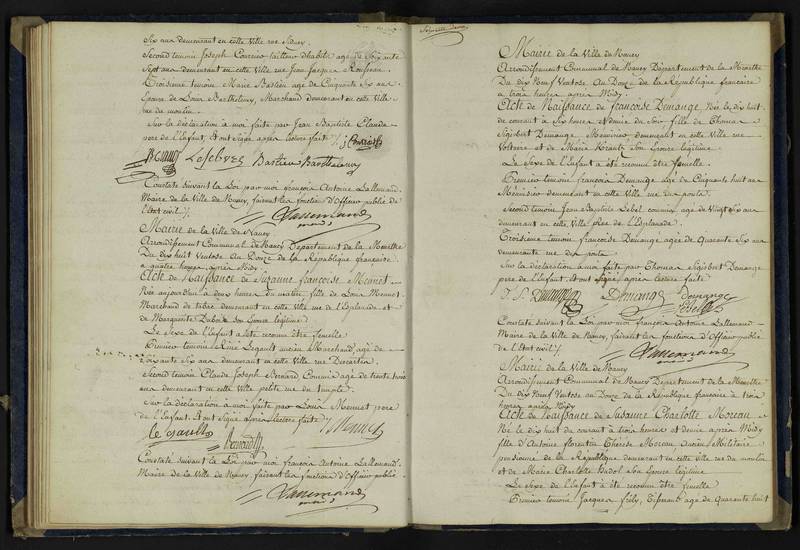 Six ans demeurant en cette Ville rue Sidney.
Second temoin Joseph Courrier tailleur d'habits agé de Soixante
Sept ans demeurant en cette Ville rue Jean Jacques Rousseau.
Troisieme temoin Marie Bastien agée de Cinquante Six ans
Epouse de Louis Barthelemy, Marchand demeurant en cette Ville
rue du moulin.
Sur la déclaration à moi faite par Jean Baptiste Claude
pere de l'Enfant, Et ont signé après lecture faite
Lefebvre Bastien Barthelemy
Constaté suivant la Loi par moi françois Antoine Lallemand.
Maire de la Ville de Nancy, faisant les fonctions d'Officier public de
l'état civil
Lallemand
maire
Mairie de la Ville de Nancy
Arrondissement Communal de Nancy Département de la Meurthe
Du dix huit Ventose An Douze de la République française
a quatre heures après Midy
Acte de Naissance de Suzanne françoise Mennet
Née aujourd'hui à deux heures du matin, fille de Louis Mennet
Marchand de tabac demeurant en cette Ville rue de l'Esplanade et
de Marguerite Dubois son Epouse légitime
Le Sexe de l'Enfant a été reconnu être femelle
Premier temoin Aimé Legault ancien Marchand agé de
Soixante Six ans demeurant en cette Ville rue Descartes.
Second temoin Claude Joseph Bernard Commis agé de trente trois
ans demeurant en cette Ville petite rue du temple.
Sur la déclaration à moi faite par Louis Mennet pere
de l'Enfant. Et ont Signé après lecture faite
Mennet
Constaté suivant la Loi par moi françois Antoine Lallemand.
Maire de la Ville de Nancy, faisant les fonctions d'Officier public.
Lallemand
maire
Mairie de la Ville de Nancy
Arrondissement Communal de Nancy Département de la Meurthe
Du dix Neuf Ventose An Douze de la République française
a trois heures après Midy
Acte de Naissance de françoise Demange, Née le dix huit
de courant à Six heures et demie du Soir fille de Thomas
Sigisbert Demange, Menuisier demeurant en cette Ville rue
Voltaire et de Marie Krantz son Epouse légitime.
Le Sexe de l'Enfant a été reconnu être femelle.
Premier temoin françois Demange agé de Cinquante huit ans
Menuisier demeurant en cette Ville rue
Second temoin Jean Baptiste Lebel commis, agé de Vingt Six ans
demeurant en cette Ville place de l'Esplanade.
Troisieme temoin françoise Demange agée de Quarante Six ans
demeurante rue
Sur la déclaration à moi faite par Thomas Sigisbert Demange
pere de l'Enfant. Et ont signé après lecture faite
Demange
Lebel
Constaté suivant la Loi par moi françois Antoine Lallemand
Maire de la Ville de Nancy, faisant les fonctions d'Officier public
de l'Etat civil
Lallemand
maire
Mairie de la Ville de Nancy
Arrondissement Communal de Nancy Département de la Meurthe
Du dix Neuf Ventose an Douze de la République française à trois
heures après Midy
Acte de Naissance de Susanne Charlotte Moreau
Née le dix huit du courant à trois heures et demie après Midy
fille d'Antoine florentin Thérèse Moreau ancien Militaire
pensionné de la République, demeurant en cette Ville rue du moulin
et de Marie Charlotte Budol son Epouse légitime
Le Sexe de l'Enfant à été reconnu être femelle
Premier temoin Jacques Joly, Tisserand agé de Quarante huit